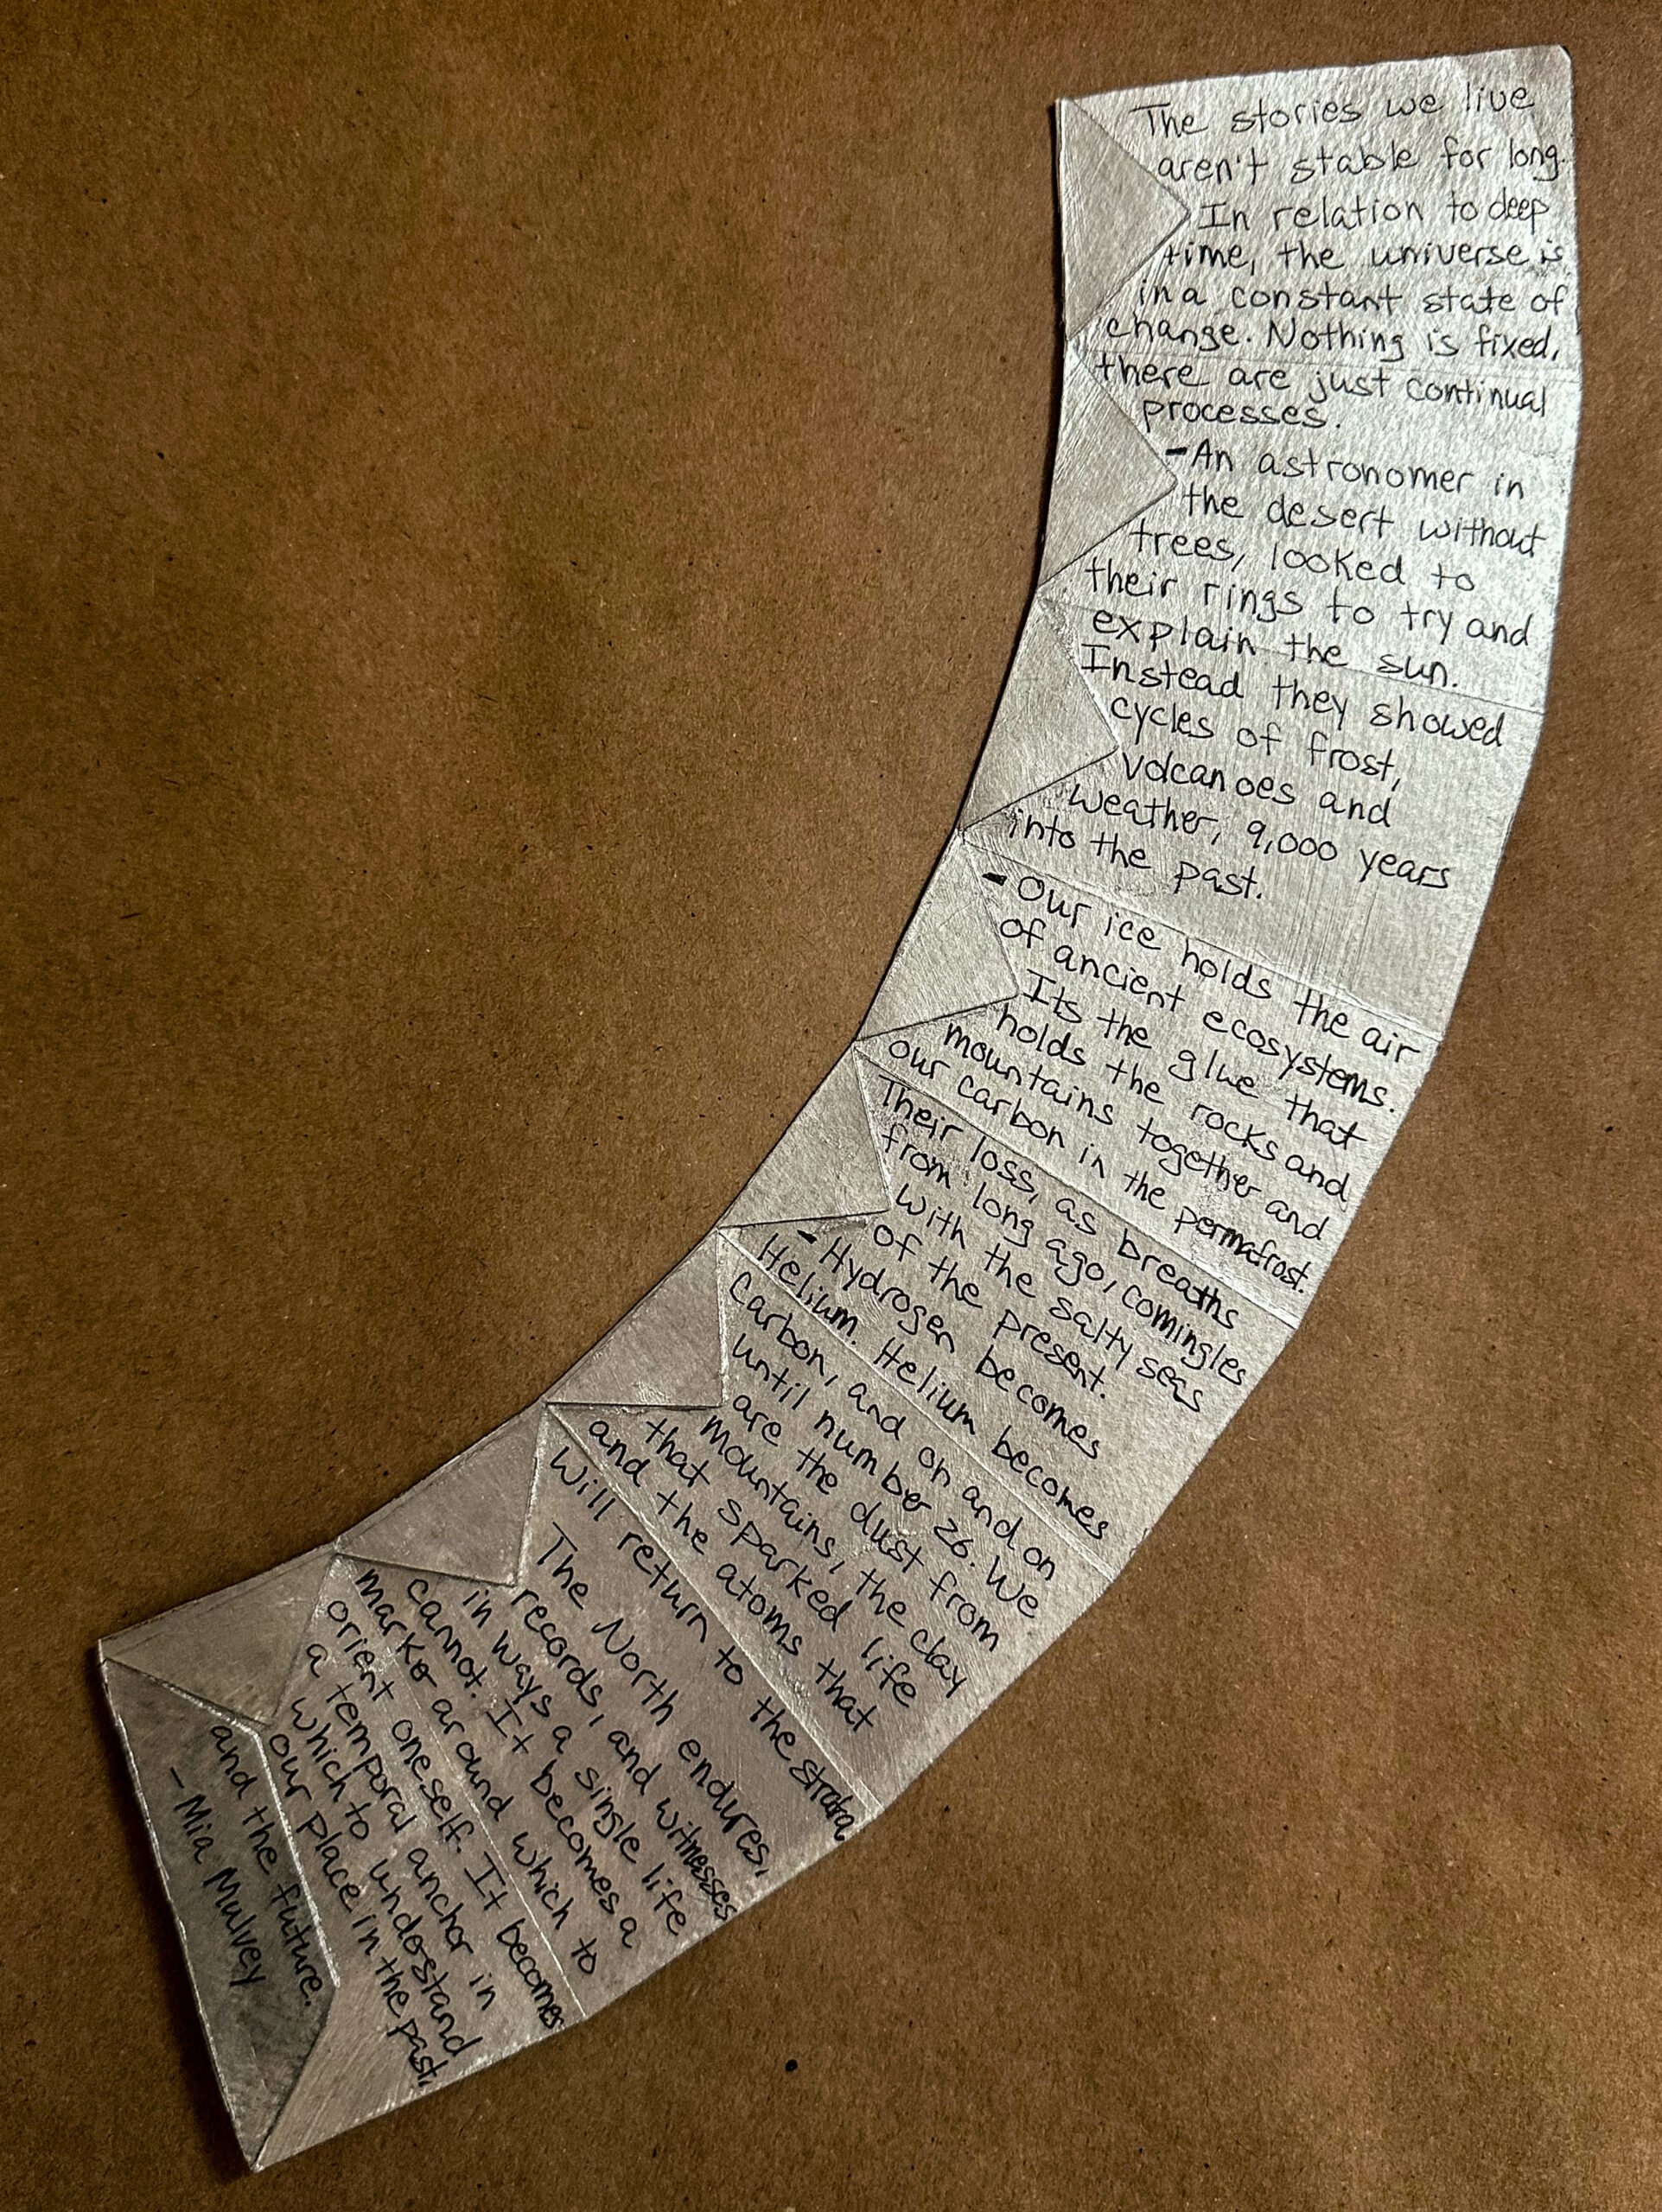 The stories we live
aren't stable for long.
In relation to deep
time, the universe is
in a constant state of
change. Nothing is fixed,
there are just continual
processes.
-An astronomer in
the desert without
trees, looked to
their rings to try and
explain the sun.
Instead they showed
cycles of frost,
volcanoes and
weather, 9,000 years
into the past.
- Our ice holds the air
of ancient ecosystems.
Its the glue that
holds the rocks and
mountains together and
our carbon in the permafrost.
Their loss, as breaths
from long ago, comingles
with the salty seas
of the present.
- Hydrogen becomes
Helium. Helium becomes
Carbon, and on and on
until number 26. We
are the dust from
mountains, the clay
that sparked life
and the atoms that
will return to the strata.
The North endures,
records, and witnesses
in ways a single life
cannot. It becomes a
marker around which to
orient oneself. It becomes
a temporal anchor in
which to understand
our place in the past,
and the future.
- Mia Mulvey